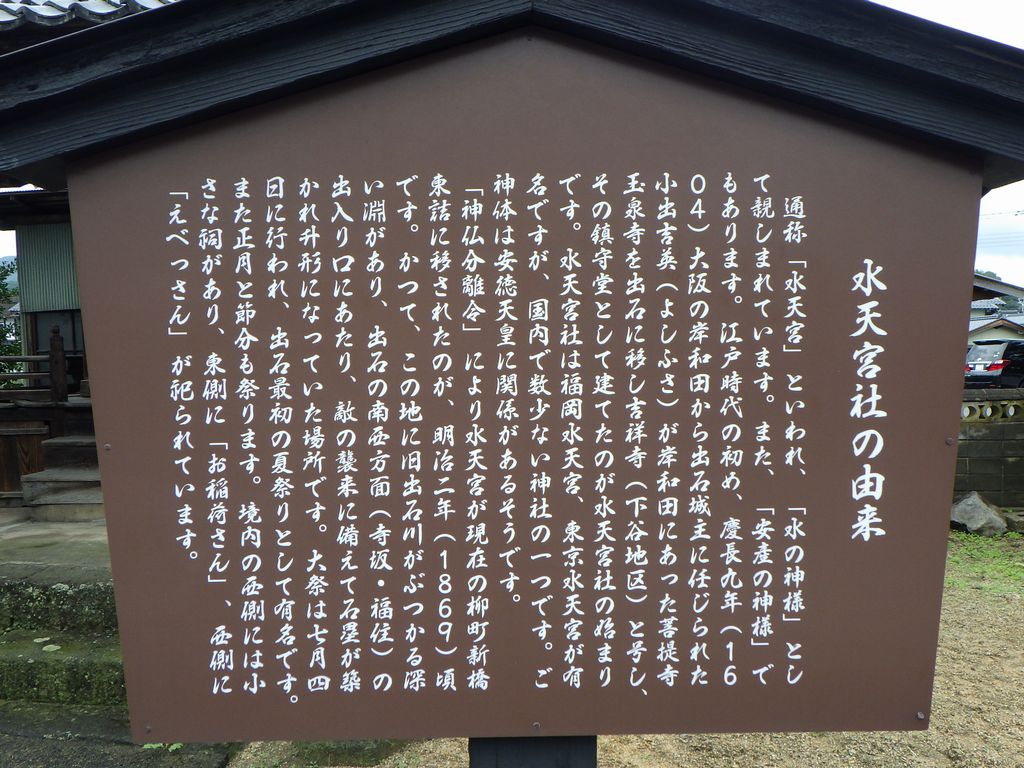 水天宮社の由来
通称「水天宮」といわれ、「水の神様」とし
て親しまれています。また、「安産の神様」で
もあります。江戸時代の初め、慶長九年（16
04）大阪の岸和田から出石城主に任じられた
小出吉英（よしふさ）が岸和田にあった菩提寺
玉泉寺を出石に移し吉祥寺（下谷地区）と号し、
その鎮守堂として建てたのが水天宮社の始まり
です。水天宮社は福岡水天宮、東京水天宮が有
名ですが、国内で数少ない神社の一つです。ご
神体は安徳天皇に関係があるそうです。
「神仏分離令」により水天宮が現在の柳町新橋
東詰に移されたのが、明治二年（1869）頃
です。かつて、この地に旧出石川がぶつかる深
い淵があり、出石の南西方面（寺坂・福住）の
出入り口にあたり、敵の襲来に備えて石塁が築
かれ升形になっていた場所です。大祭は七月四
日に行われ、出石最初の夏祭りとして有名です。
また正月と節分も祭ります。境内の西側には小
さな祠があり、東側に「お稲荷さん」、西側に
「えべっさん」が祀られています。